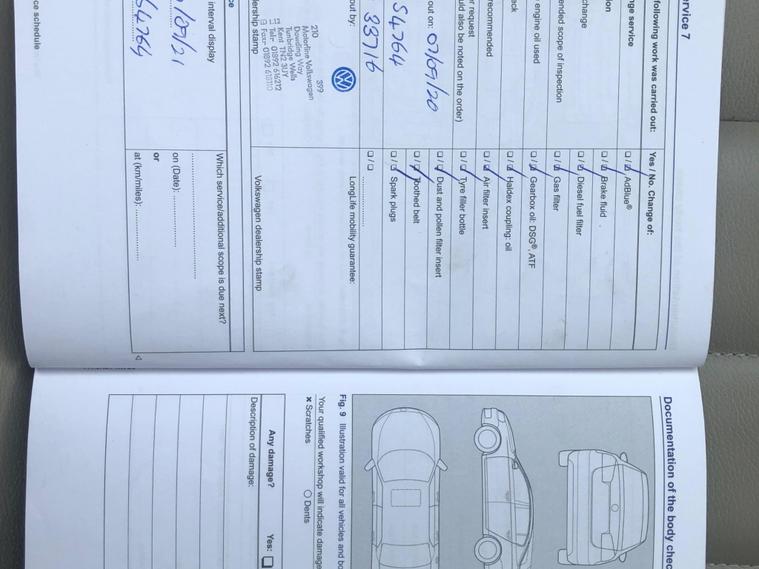 rvice 7
following work was carried out:
Yes / No. Change of:
nge service
AdBlue®
tion
Brake fluid
change
Diesel fuel filter
ended scope of inspection
Gas filter
engine oil used
Gearbox oil: DSG®, ATF
ack
Haldex coupling: oil
recommended
Air filter insert
r request
uld also be noted on the order)
Tyre filler bottle
out on: 07/09/20
Dust and pollen filter insert
54764
Toothed belt
Spark plugs
33716
out by:
LongLife mobility guarantee:
210
399
Motorline Volkswagen
Dowding Way
Tunbridge Wells
Kent TN2 3UY
ership stamp
Volkswagen dealership stamp
ce
Which service/additional scope is due next?
interval display
on (Date):
or
at (km/miles):
64764
ce schedule
Documentation of the body chec
Fig. 9 Illustration valid for all vehicles and bo
Your qualified workshop will indicate damage
× Scratches ○ Dents
Any damage? Yes:
Description of damage: